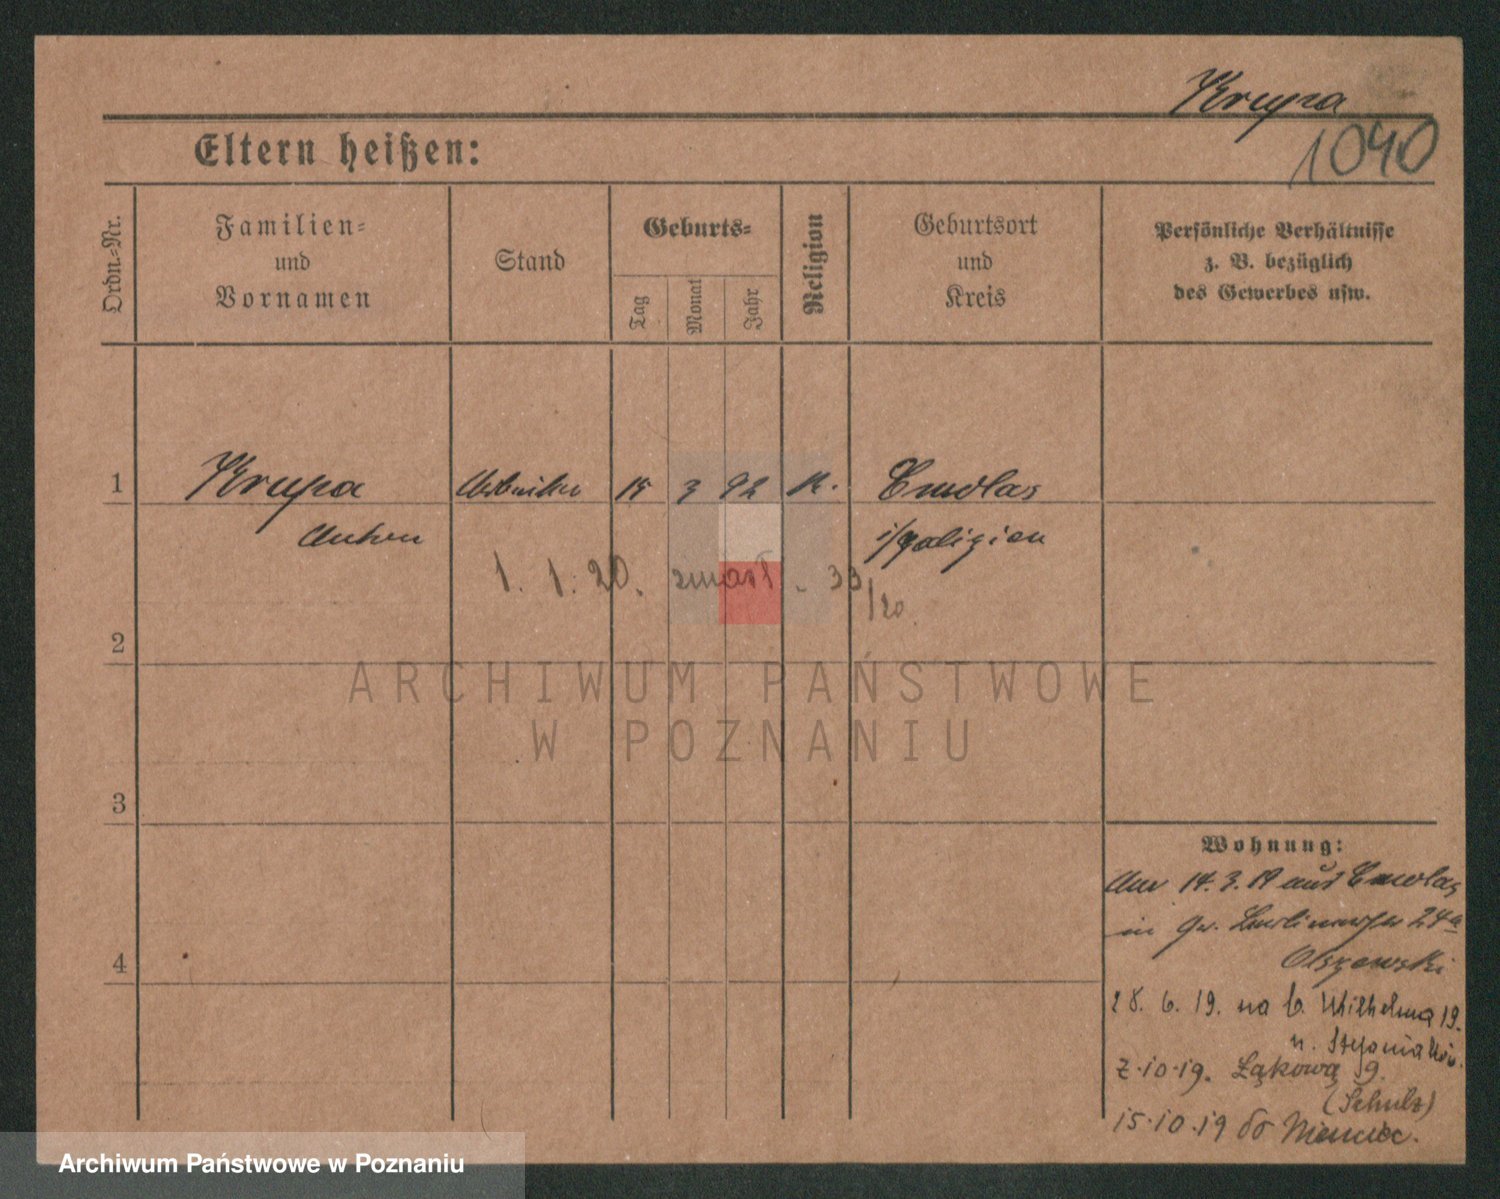 Krupa
1040
Eltern heißen:
Ordn.-Nr.
Familien-
und
Vornamen
Stand
Geburts-
Tag
Monat
Jahr
Religion
Geburtsort
und
Kreis
Persönliche Verhältnisse
z. B. bezüglich
des Gewerbes usw.
1 Krupa Arbeiter 15 3 92 K. Cmolas
Anton i/galizien
1. 1. 20. zmarł - 33/20.
2
ARCHIWUM PAŃSTWOWE
W POZNANIU
3
Wohnung:
14. 3. 19 aus Cmolas
in Gr. 24a
Olszewski
4
28. 6. 19. na Wilhelma 19.
u.
2.10.19. Łąkowa 9.
(Schulz)
15.10.19 do Niemiec.
Archiwum Państwowe w Poznaniu